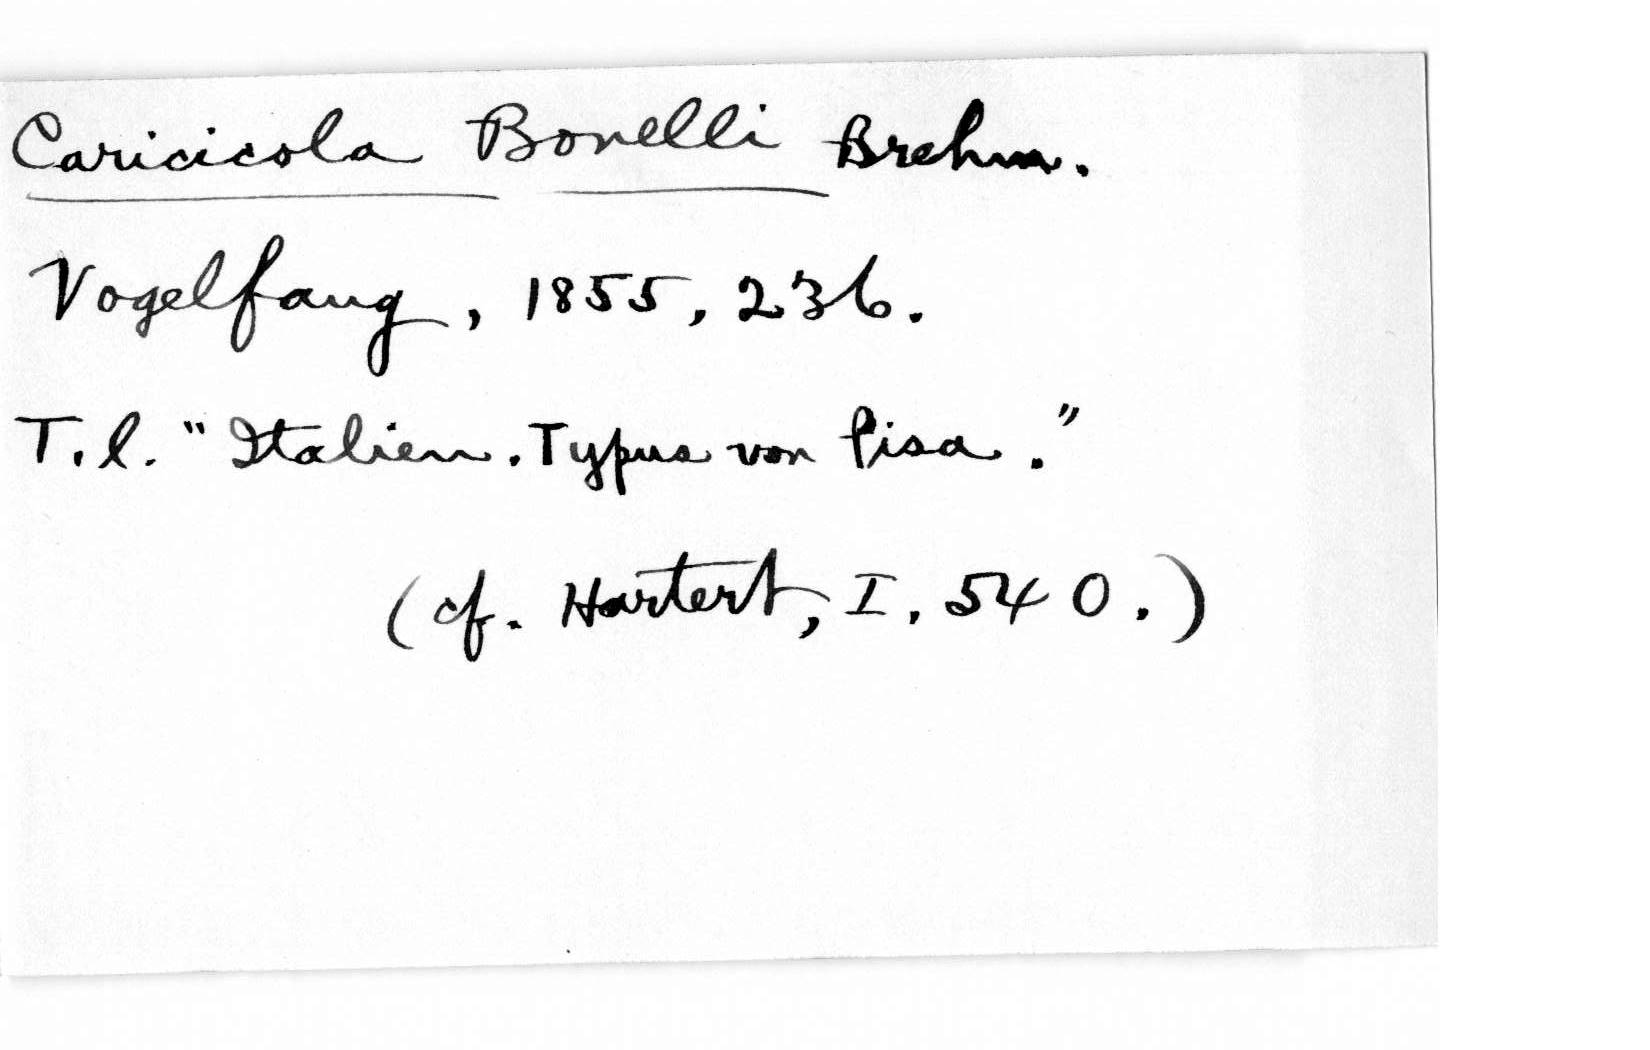 Caricicola Bonelli Brehm.
Vogelfang, 1855, 236.
T.l. "Italien. Typus von Pisa."
(cf. Hartert, I, 540.)